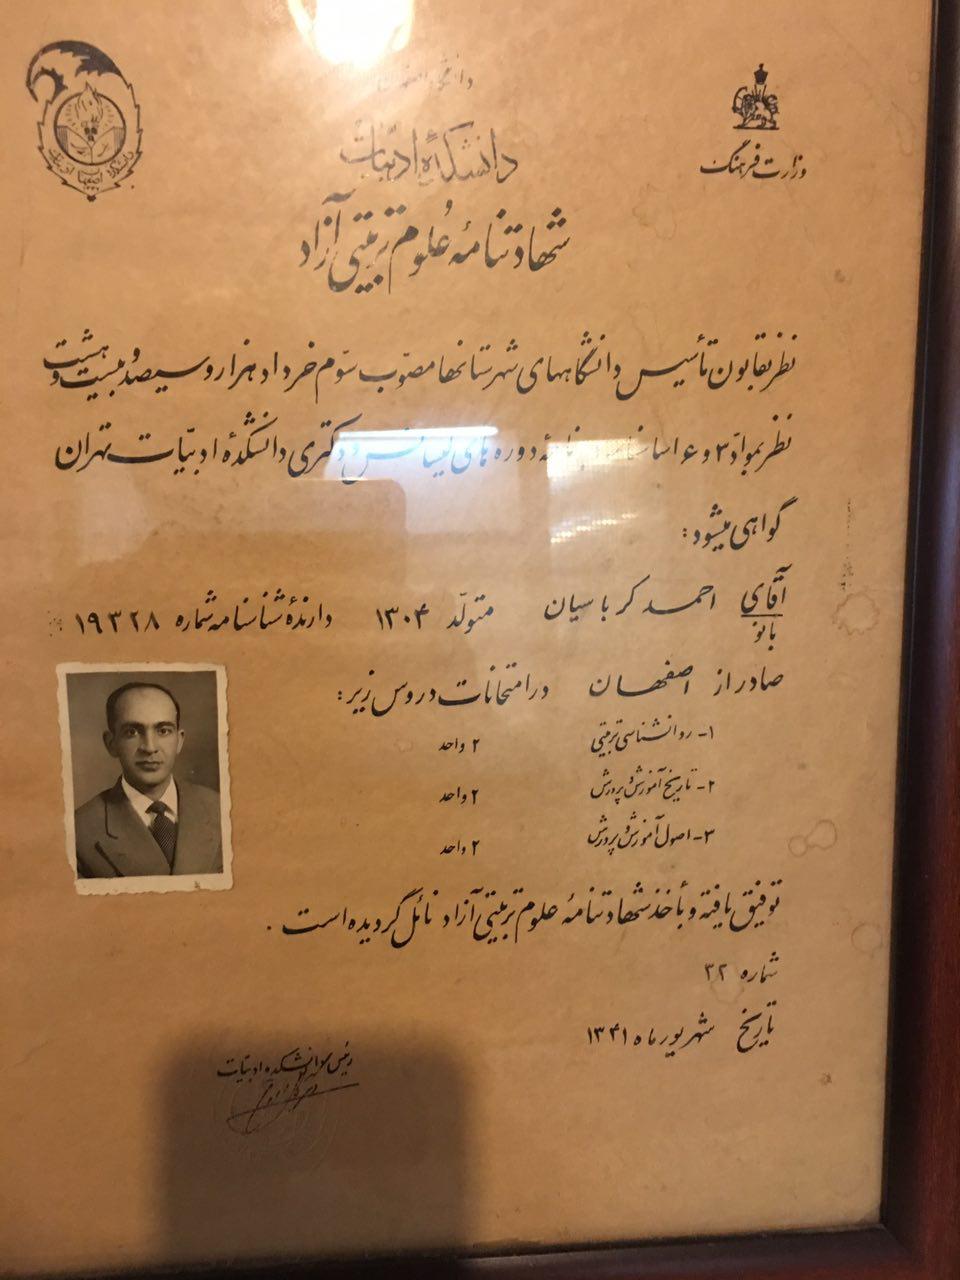 وزارت فرهنگ
دانشکدهٔ ادبیّات
شهادتنامهٔ علوم تربیتی آزاد
نظر بقانون تأسیس دانشگاههای شهرستانها مصوّب سوّم خرداد هزار و سیصد و بیست و هشت
نظر بموادّ ۳ و ۶ دوره های لیسانس و دکتری دانشکدهٔ ادبیّات تهران
گواهی میشود:
آقای احمد کرباسیان متولّد ۱۳۰۴ دارندهٔ شناسنامه شماره ۱۹۳۲۸
بانو
صادر از اصفهان در امتحانات دروس زیر:
۱- روانشناسی تربیتی ۲ واحد
۲- تاریخ آموزش و پرورش ۲ واحد
۳- اصول آموزش و پرورش ۲ واحد
توفیق یافته و بأخذ شهادتنامهٔ علوم تربیتی آزاد نائل گردیده است.
شماره ۳۲
تاریخ شهریور ماه ۱۳۴۱
رئیس دانشکده ادبیّات